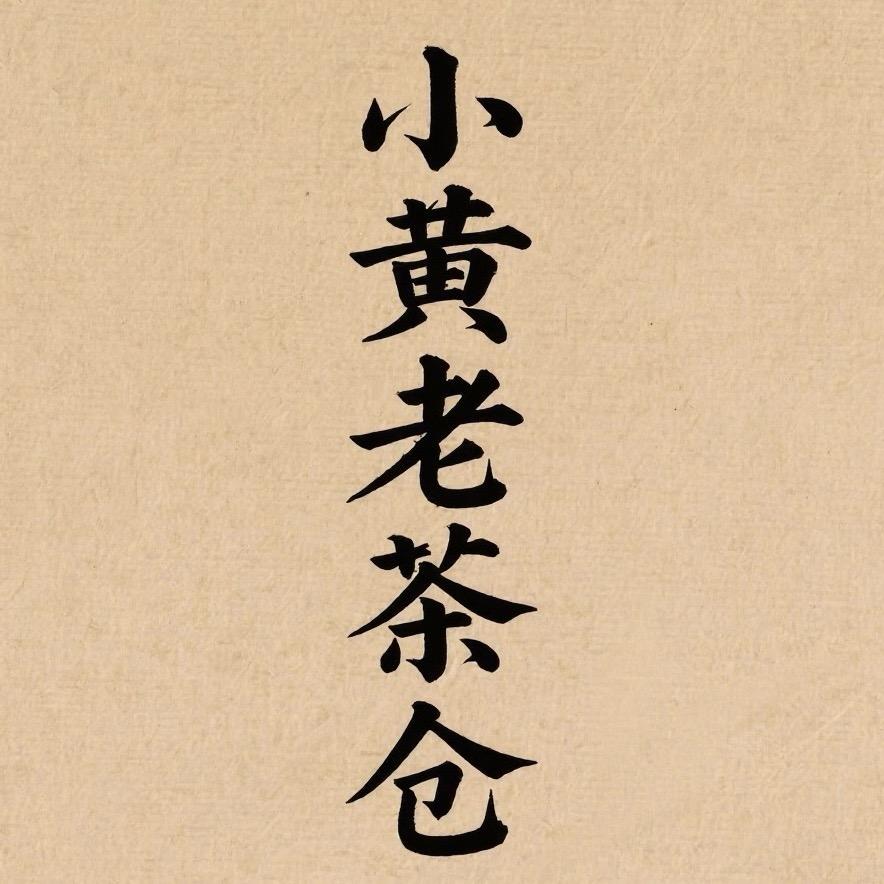 小黄老茶仓